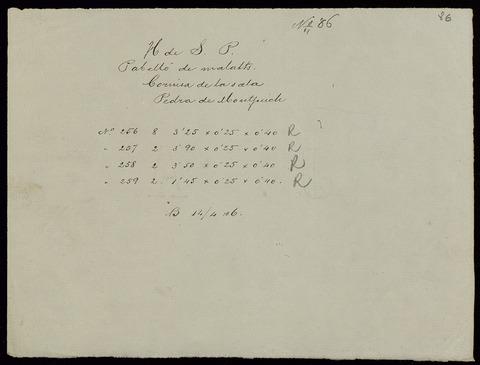 Nº 86
86
H de S. P.
Pabelló de malalts.
Cornisa de la sala
Pedra de Montjuich
Nº 256 8 3'25 x 0'25 x 0'40 R
" 257 2 3'90 x 0'25 x 0'40 R
" 258 2 3'50 x 0'25 x 0'40 R
" 259 2 1'45 x 0'25 x 0'40. R
B 14/4